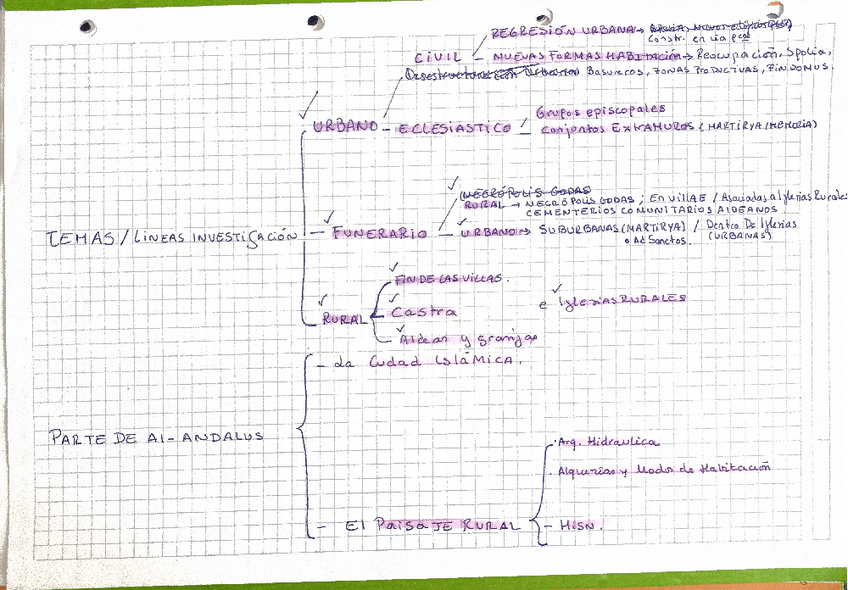 REGRESIÓN URBANA →
Constr. en via pcal
CIVIL - NUEVAS FORMAS HABITACIÓN → Reocupación, Spolia,
Basureros, ZONAS PRODUCTIVAS, FIN DOMUS.
URBANO - ECLESIASTICO
Grupos episcopales
Conjuntos EXTRAMUROS (MARTIRYA/MEMORIA)
NECRÓPOLIS GODAS
RURAL → NECRÓPOLIS GODAS; EN VILLAE / Asociadas a Iglesias Rurales
CEMENTERIOS COMUNITARIOS ALDEANOS.
TEMAS/LÍNEAS INVESTIGACIÓN - FUNERARIO - URBANO → SUBURBANAS (MARTIRYA) / Dentro De Iglesias
o Ad Sanctos. (URBANAS)
FIN DE LAS VILLAS.
RURAL
Castra
e Iglesias RURALES
Aldeas y granjas
- La Ciudad ISLÁMICA.
PARTE DE Al-ANDALUS
Arq. Hidraulica
Alquerías y Modos de Habitación
- El Paisaje RURAL
- HISN.